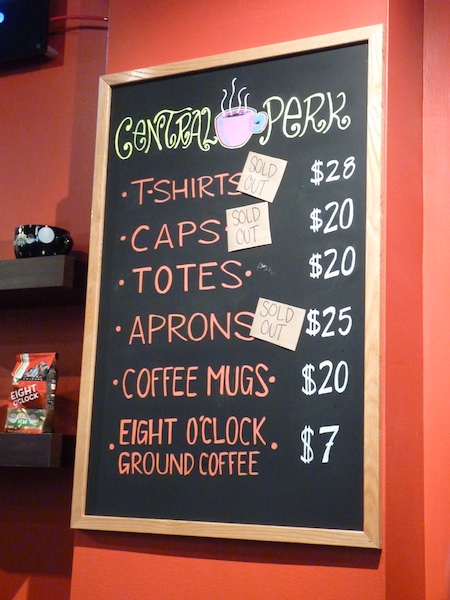 CENTRAL PERK
·T-SHIRTS SOLD OUT $28
·CAPS· SOLD OUT $20
·TOTES· $20
·APRONS SOLD OUT $25
·COFFEE MUGS· $20
·EIGHT O'CLOCK· $7
GROUND COFFEE
EIGHT
O'CLOCK